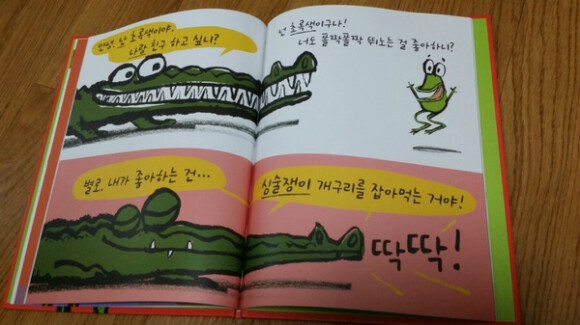 안녕, 넌 초록색이야.
나랑 친구 하고 싶니?
넌 초록색이구나!
너도 폴짝폴짝 뛰노는 걸 좋아하니?
별로. 내가 좋아하는 건...
심술쟁이 개구리를 잡아먹는 거야!
딱딱!